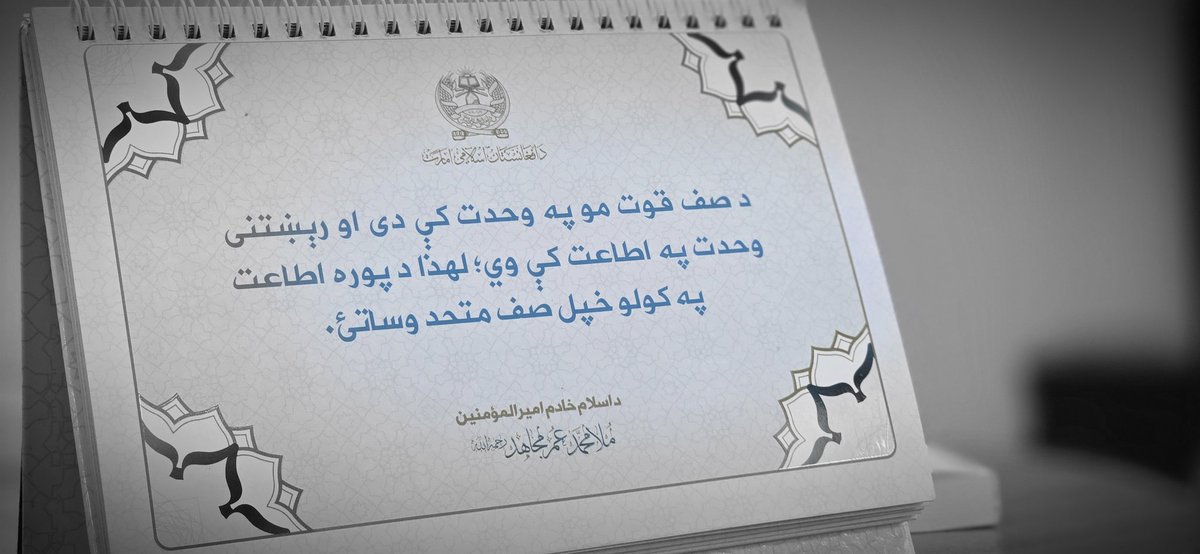 د افغانستان اسلامي امارت
د صف قوت مو په وحدت کې دی او رېښتنی
وحدت په اطاعت کې وي؛ لهذا د پوره اطاعت
په کولو خپل صف متحد وساتئ.
د اسلام خادم امیرالمؤمنین
ملا محمد عمر مجاهد رحمه الله